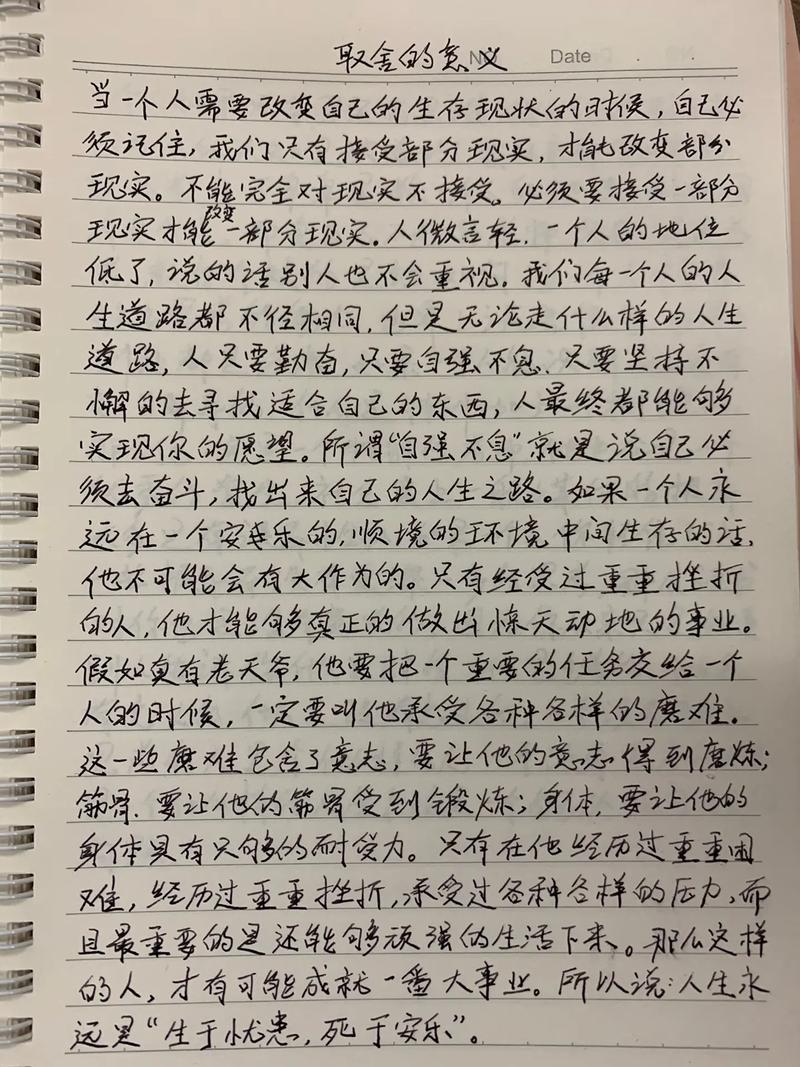 取舍的意义
No
Date
当一个人需要改变自己的生存现状的时候,自己必
须记住,我们只有接受部分现实,才能改变部分
现实。不能完全对现实不接受。必须要接受一部分
现实才能改变一部分现实。人微言轻.一个人的地位
低了,说的话别人也不会重视。我们每一个人的人
生道路都不径相同,但是无论走什么样的人生
道路,人只要勤奋,只要自强不息.只要坚持不
懈的去寻找适合自己的东西,人最终都能够
实现你的愿望。所谓“自强不息”就是说自己必
须去奋斗,找出来自己的人生之路。如果一个人永
远在一个安乐的,顺境的环境中间生存的话,
他不可能会有大作为的。只有经受过重重挫折
的人,他才能够真正的做出惊天动地的事业。
假如真有老天爷,他要把一个重要的任务交给一个
人的时候,一定要叫他承受各种各样的磨难。
这一些磨难包含了意志,要让他的意志得到磨炼;
筋骨.要让他的筋骨受到锻炼;身体,要让他的
身体具有足够的耐受力。只有在他经历过重重困
难,经历过重重挫折,承受过各种各样的压力,而
且最重要的是还能够顽强的生活下来。那么这样
的人,才有可能成就一番大事业。所以说:人生永
远是“生于忧患,死于安乐”。